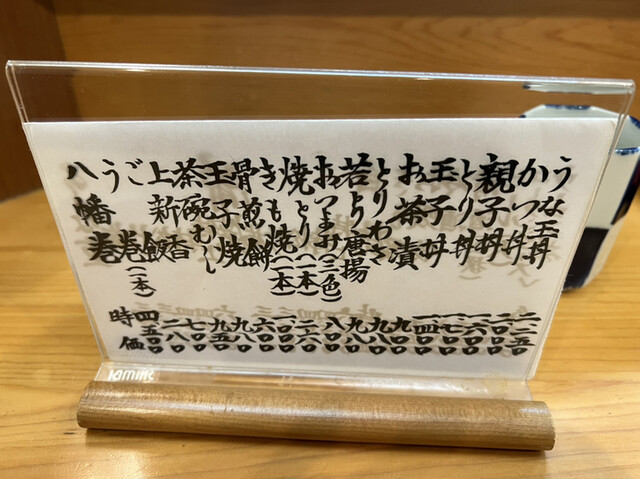 うな玉丼 二二五〇
かつ丼
親子丼 一六〇〇
とり丼 一七〇〇
玉子丼 一四〇〇
お茶漬 九〇〇
とりわさ 九八〇
若とり唐揚 九八〇
おつまみ(三色) 八〇〇
焼とり(一本)
きも焼(一本)
骨煎餅 六〇〇
玉子焼 九八〇
茶碗むし 九五〇
上新香 七〇〇
ご飯 二八〇
う巻(一本) 四五〇〇
八幡巻 時価